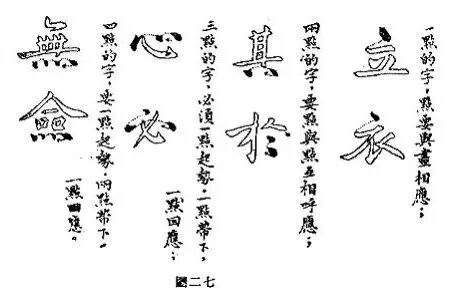 一點的字，點要與畫相應；
立衣
兩點的字，要點與點互相呼應；
其於
三點的字，必須一點起勢，一點帶下，
一點回應；
心必
四點的字，要一點起勢，兩點帶下。
一點回應。
無僉
圖二七